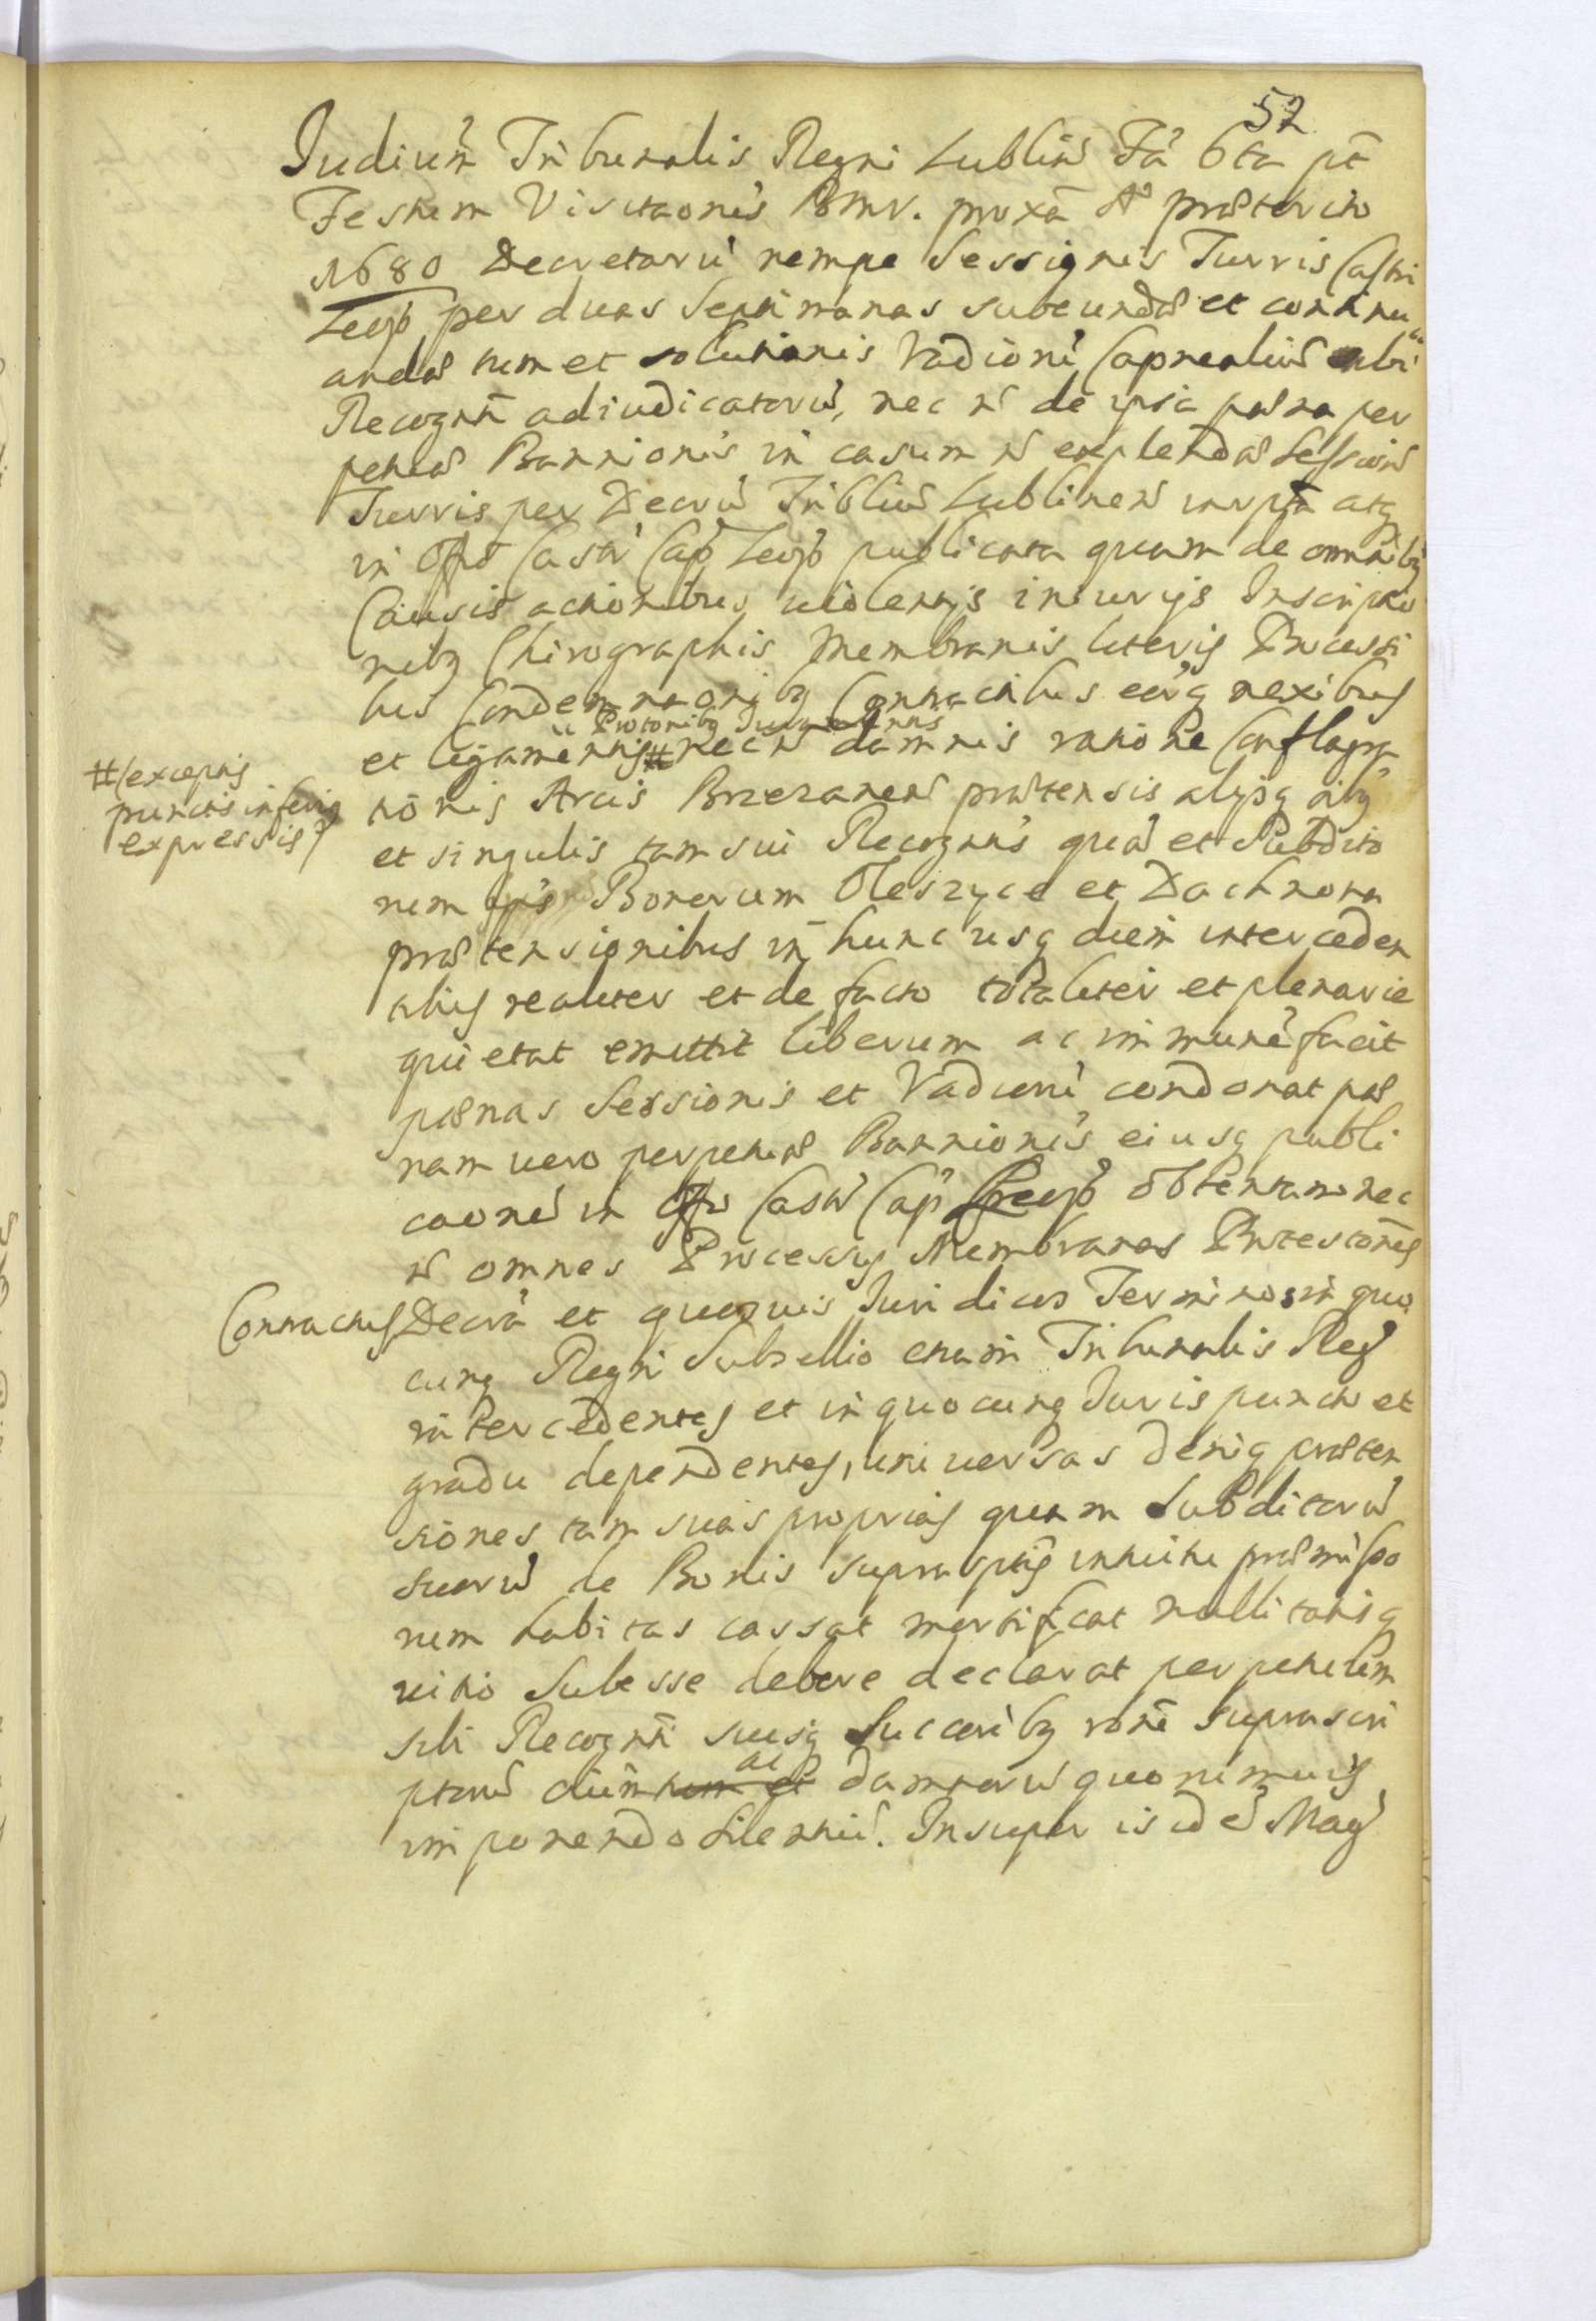 52
Judiciũ Tribunalis Regni Lublin Fã 6ta pt
Festum Visitaonis BMV. proxã Ao præterito
1680 Decretarũ nempe Sessionis Turris Castri
Leop per duas Septimanas subeundæ et continu
andæ tum et solutionis Vadiorũ Capnealiũ sibi
Recogntĩ adiudicatorũ, nec ñ de ipsa pæna per
petuæ Bannionis in casum ñ explendæ Sessionis
Turris per Decrũ Tribliũ Lublinen irrpta atq
in Offo Castr Cap Leop publicata quam de omnibq
Causis actionibus violentijs iniurijs Inscriptio
nibq Chirographis Membranis literis Processi
bus Condemnaonibq Contractibus eorq nexibus
et ligamentis # nec ñ damnis ratione Conflagra
#(exceptis
punctis inferiq
expressis)
tionis Arcis Brzezanen prætensis alijsq oibq
et singulis tam sui Recogntis quã et Subdito
rum Bonorum Oleszyce et Dachnona
prætensionibus in hunc usq diem interceden
tibus realiter et de facto totaliter et plenarie
quietat emittit liberum ac immunẽ facit
pænas Sessionis et Vadiorũ condonat pæ
nam vero perpetuæ Bannionis eiusq publi
caonẽ in Offo Castr Cap Leop obtentam nec
ñ omnes Processus Membranas Protestones
Contractus Decrã et quosvis Juridicos Terminos in quo
cunq Regni Subsellio etiam Tribunalis Reg
intercedentes et in quocunq Juris puncto et
gradu dependentes, universas deniq præten
siones tam suas proprias quam Subditorũ
suorũ de Bonis suprasptis intuitu præmisso
rum habitas cassat mortificat nullitatisq
vitio Subesse debere declarat perpetuum
sibi Recogntĩ suisq Succoribq ronẽ suprascri
ptorũ oium tum et ac damnorũ quorumvis
imponendo silentiũ. Insuper is idẽ Mag